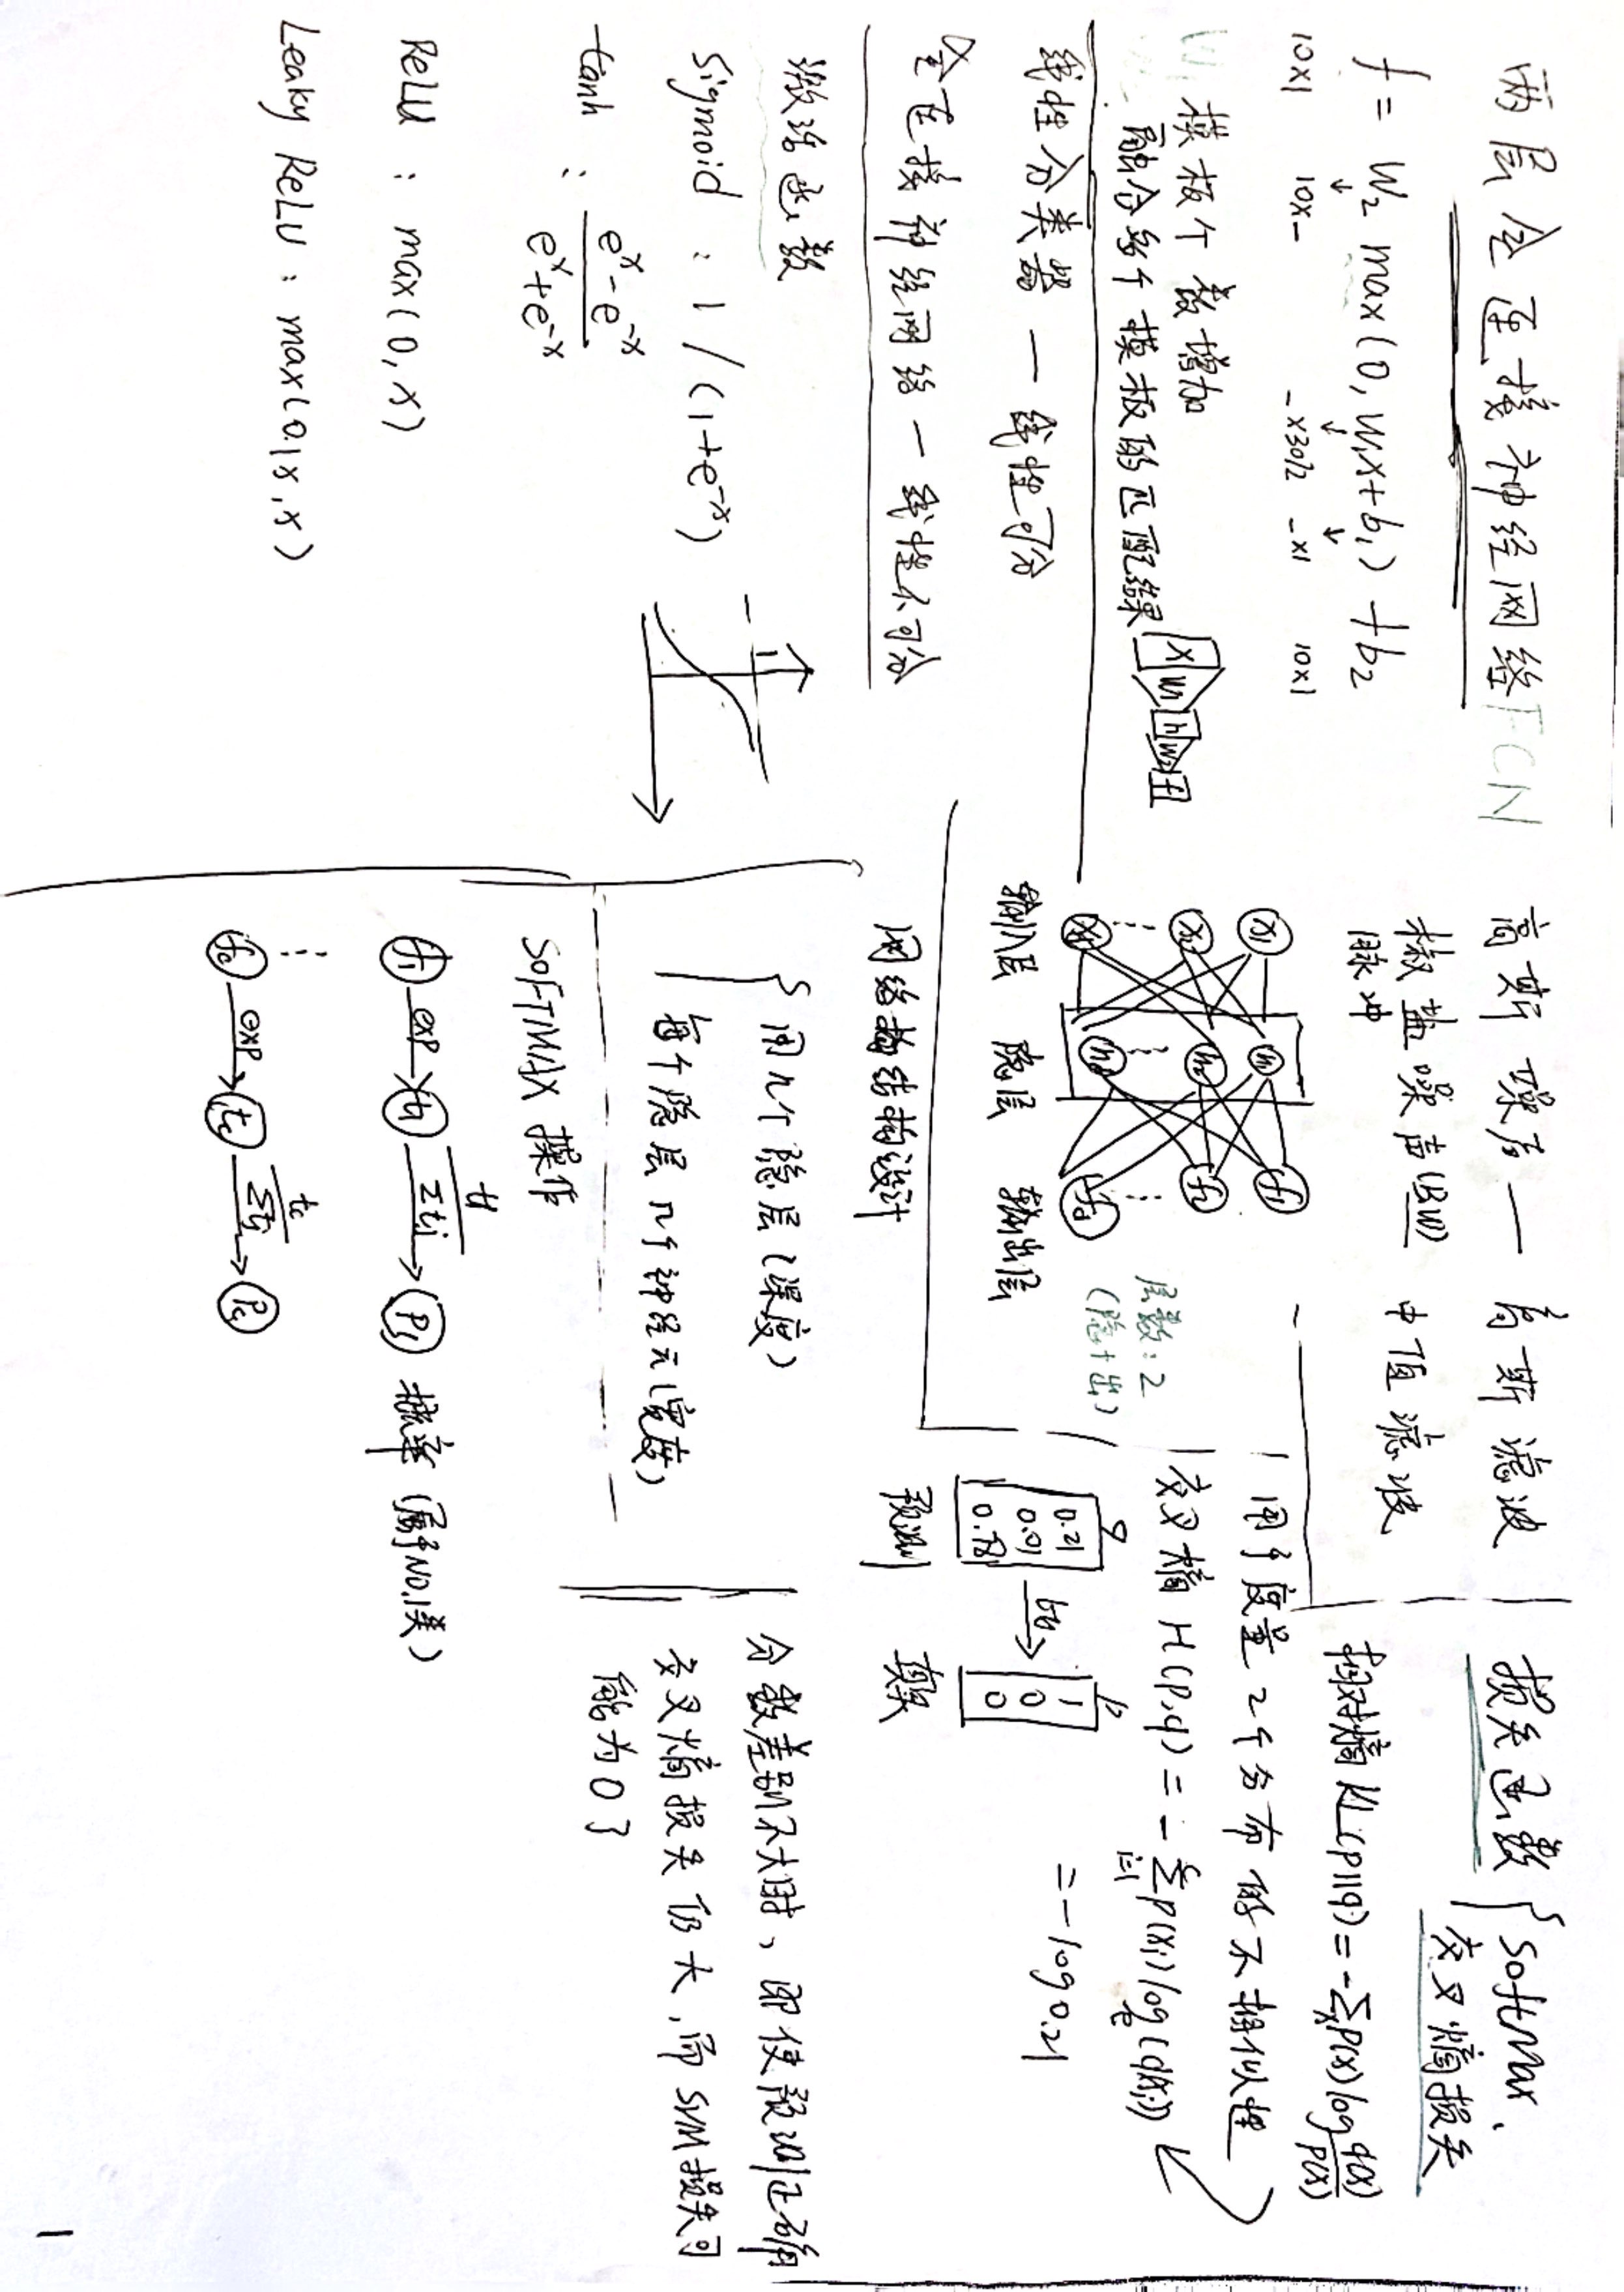 两层全连接神经网络FCN
f = W₂ max(0, W₁x+b₁) +b₂
10x1 10x_ _x3072 _x1 10x1
W₁ 模板个数增加
融合多个模板的匹配结果
x W₁ h W₂ f
线性分类器 — 线性可分
全连接神经网络 — 线性不可分
激活函数
Sigmoid : 1 / (1+e⁻ˣ)
1
tanh : (eˣ-e⁻ˣ)/(eˣ+e⁻ˣ)
ReLU : max(0, x)
Leaky ReLU : max(0.1x, x)
高斯噪声 — 高斯滤波
椒盐噪声(BW) 中值滤波
脉冲
x₁ h₁ f₁
x₂ h₂ f₂
层数: 2
(隐+出)
输入层 隐层 输出层
网络结构设计
用几个隐层(深度)
每个隐层几个神经元(宽度)
SOFTMAX 操作
f₁ exp t₁ t₁/Σtj P₁ 概率 (属于NO.1类)
fc exp tc tc/Σtj Pc
损失函数 { SoftMax.
交叉熵损失
相对熵 KL(p||q) = -Σₓ P(x) log q(x)/p(x)
用于度量2个分布的不相似性
交叉熵 H(p,q) = - Σ p(xᵢ) logₑ(q(xᵢ))
i=1
= -log 0.21
q p
0.21 1
0.01 0
0.78 0
预测 真实
分数差别不大时、即使预测正确
交叉熵损失仍大,而SVM损失可
能为0了
1